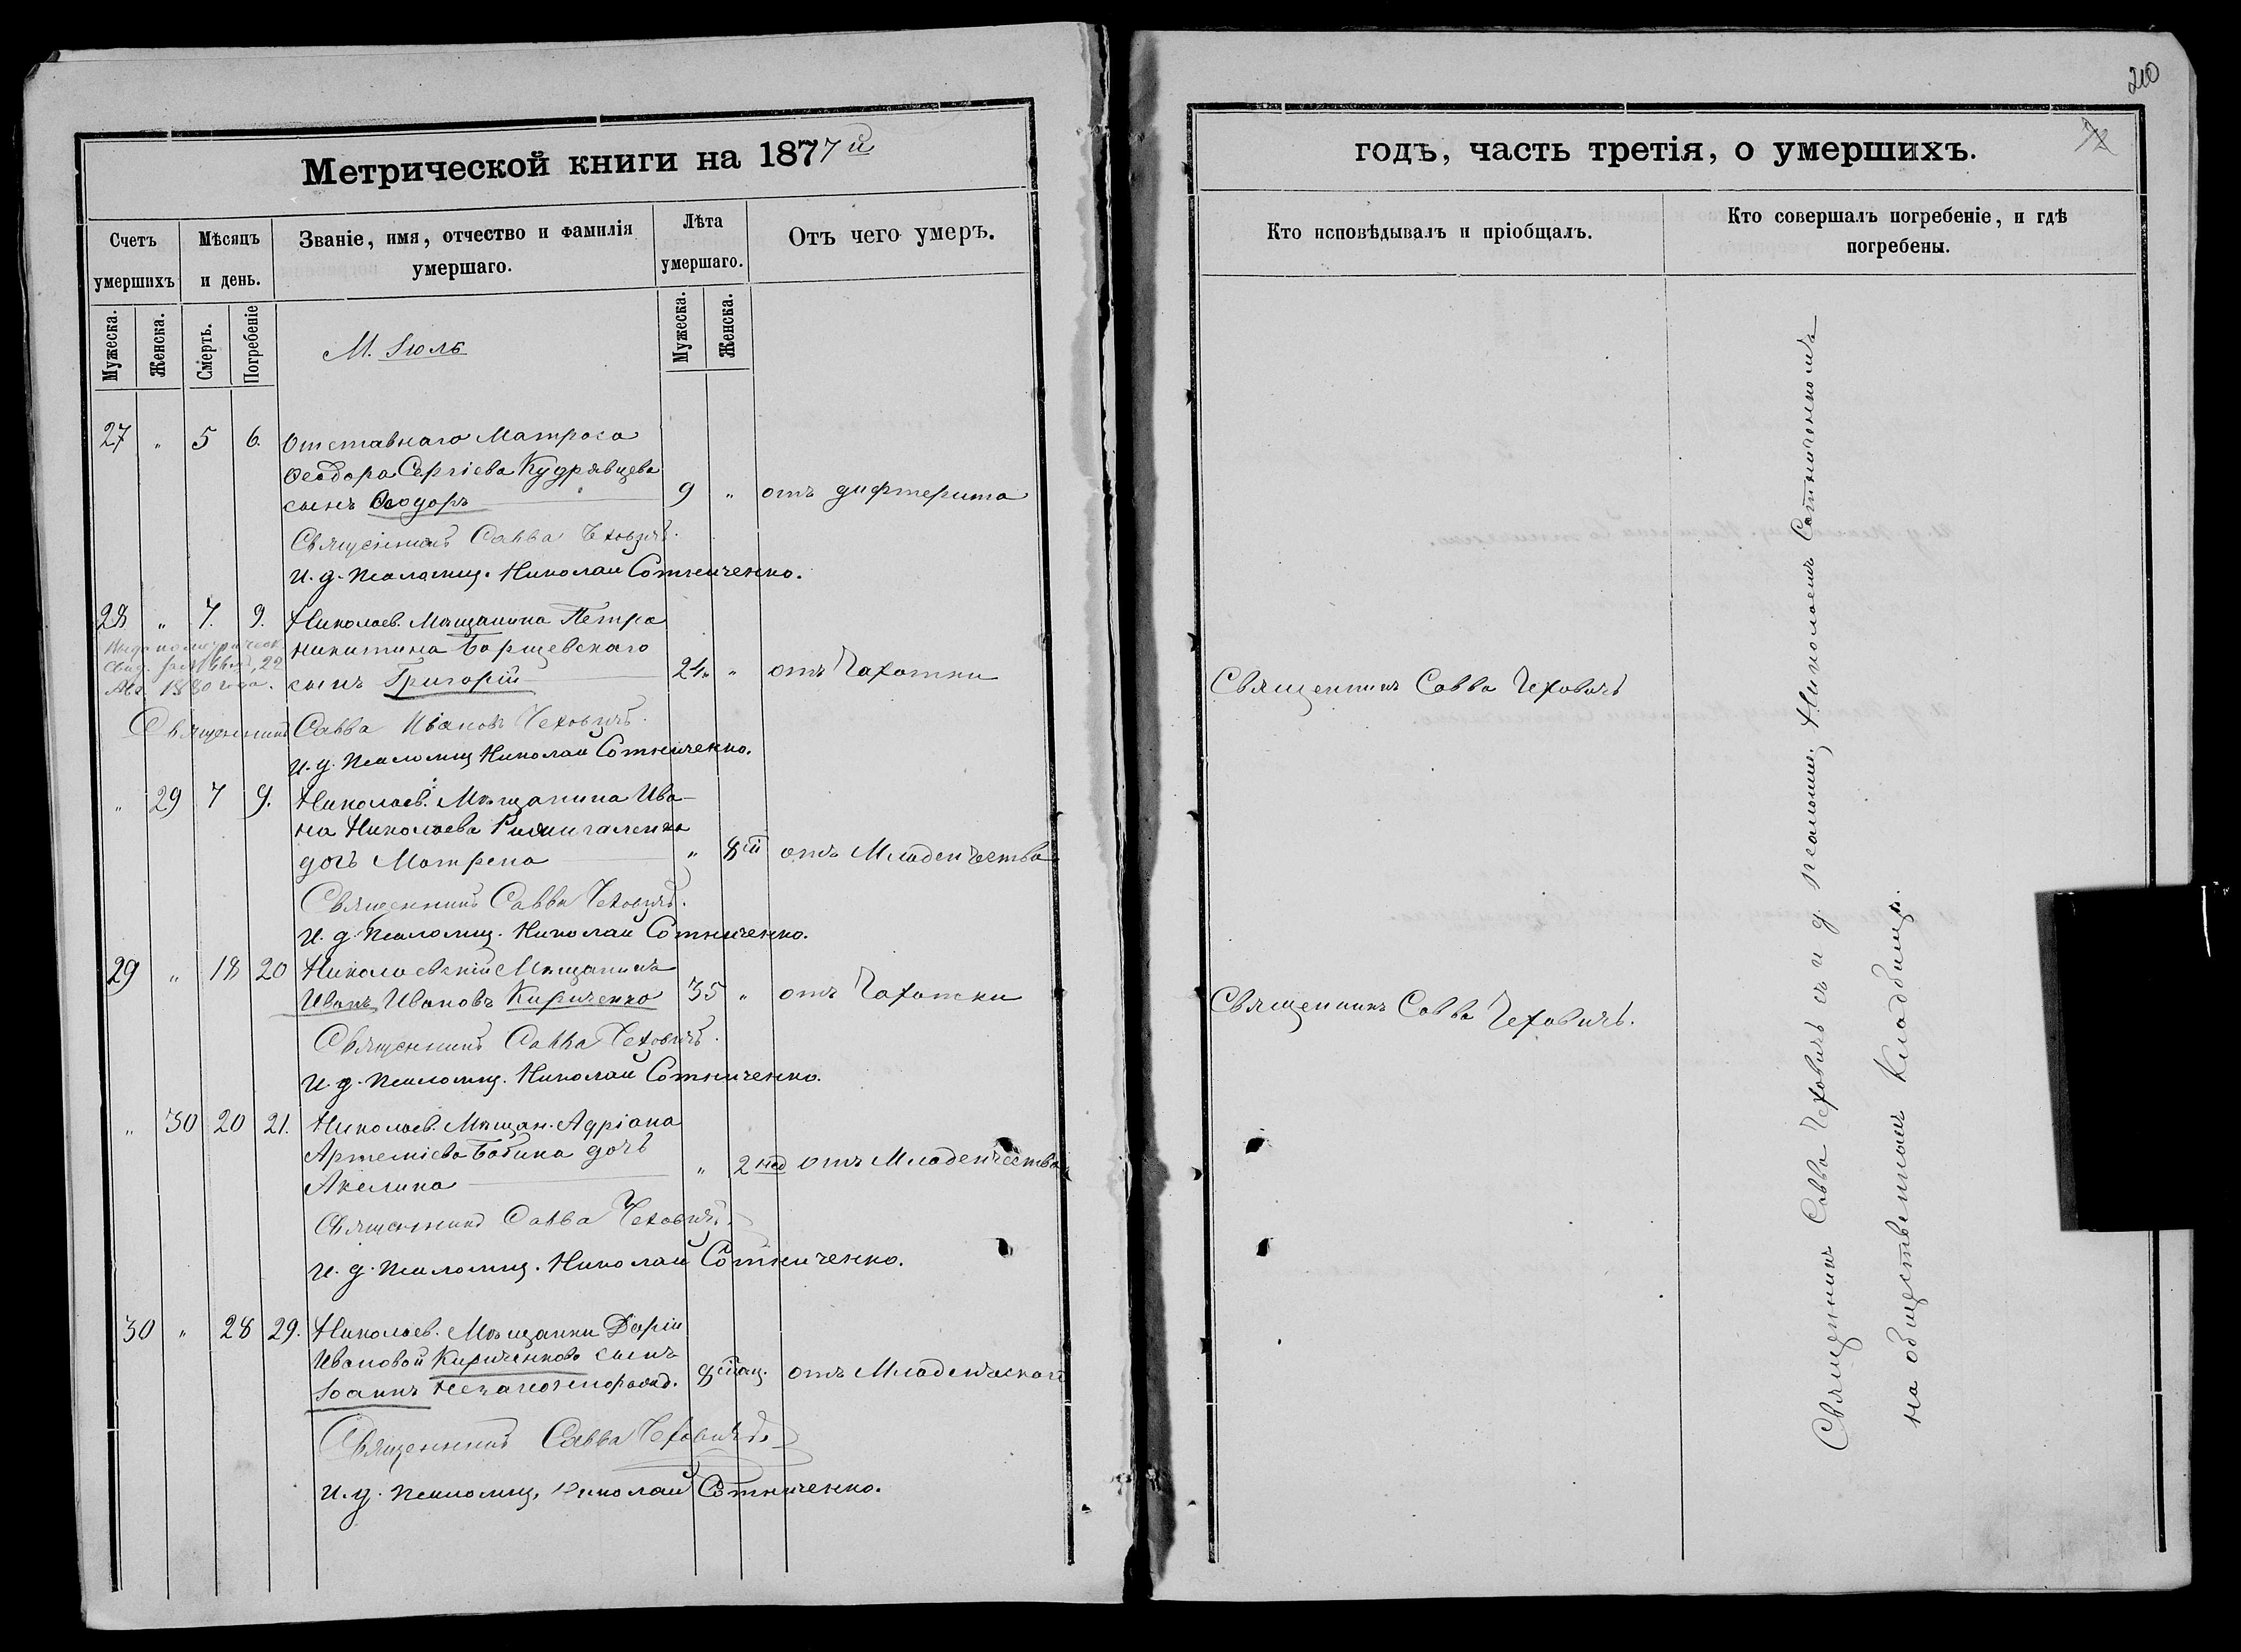 Метрической книги на 1877й
Счетъ умершихъ
Мѣсяцъ и день.
Званіе, имя, отчество и фамилія умершаго.
Лѣта умершаго.
Отъ чего умеръ.
Мужеска.
Женска.
Смерть.
Погребеніе
Мужеска.
Женска.
М. Іюль
27 " 5 6. Отставнаго Матроса
Ѳеодора Сергіева Кудрявцева
сынъ Ѳеодоръ 9 " отъ дифтерита
Священникъ Савва Чеховичъ.
И. д. псаломщ. Николай Сотниченко.
28 " 7. 9. Николаев. Мѣщанина Петра
Никитина Борщевскаго
сынъ Григорій 24 " отъ Чахотки
22
Авг. 1880 года.
Священникъ Савва Ивановъ Чеховичъ.
И. д. Псаломщ Николай Сотниченко.
" 29 7 9. Николаев. Мѣщанина Ива-
на Николаева
дочь Матрена " 8 отъ Младенчества
Священникъ Савва Чеховичъ.
И. д. Псаломщ. Николай Сотниченко.
29 " 18 20 Николаевскій Мѣщанинъ
Иванъ Ивановъ Кириченко 35 " отъ Чахотки
Священникъ Савва Чеховичъ.
И. д. Псаломщ. Николай Сотниченко.
" 30 20 21. Николаев. Мѣщан. Адріана
Артеміева Бабина дочь
Акелина " 2 нед отъ Младенчества
Священникъ Савва Чеховичъ.
И. д. Псаломщ. Николай Сотниченко.
30 " 28 29. Николаев. Мѣщанки Даріи
Ивановой Кириченковой сынъ
Іоаннъ 8 отъ Младенческаго
Священникъ Савва Чеховичъ.
И. д. Псаломщ. Николай Сотниченко.
210
годъ, часть третія, о умершихъ.
Кто исповѣдывалъ и пріобщалъ.
Кто совершалъ погребеніе, и гдѣ погребены.
Священникъ Савва Чеховичъ
Священникъ Савва Чеховичъ.
Священникъ Савва Чеховичъ съ и д. псаломщ. Николаемъ Сотниченкомъ
на общественномъ Кладбищѣ.